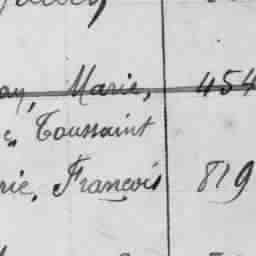 Marie, 454
Toussaint
rie, François 819